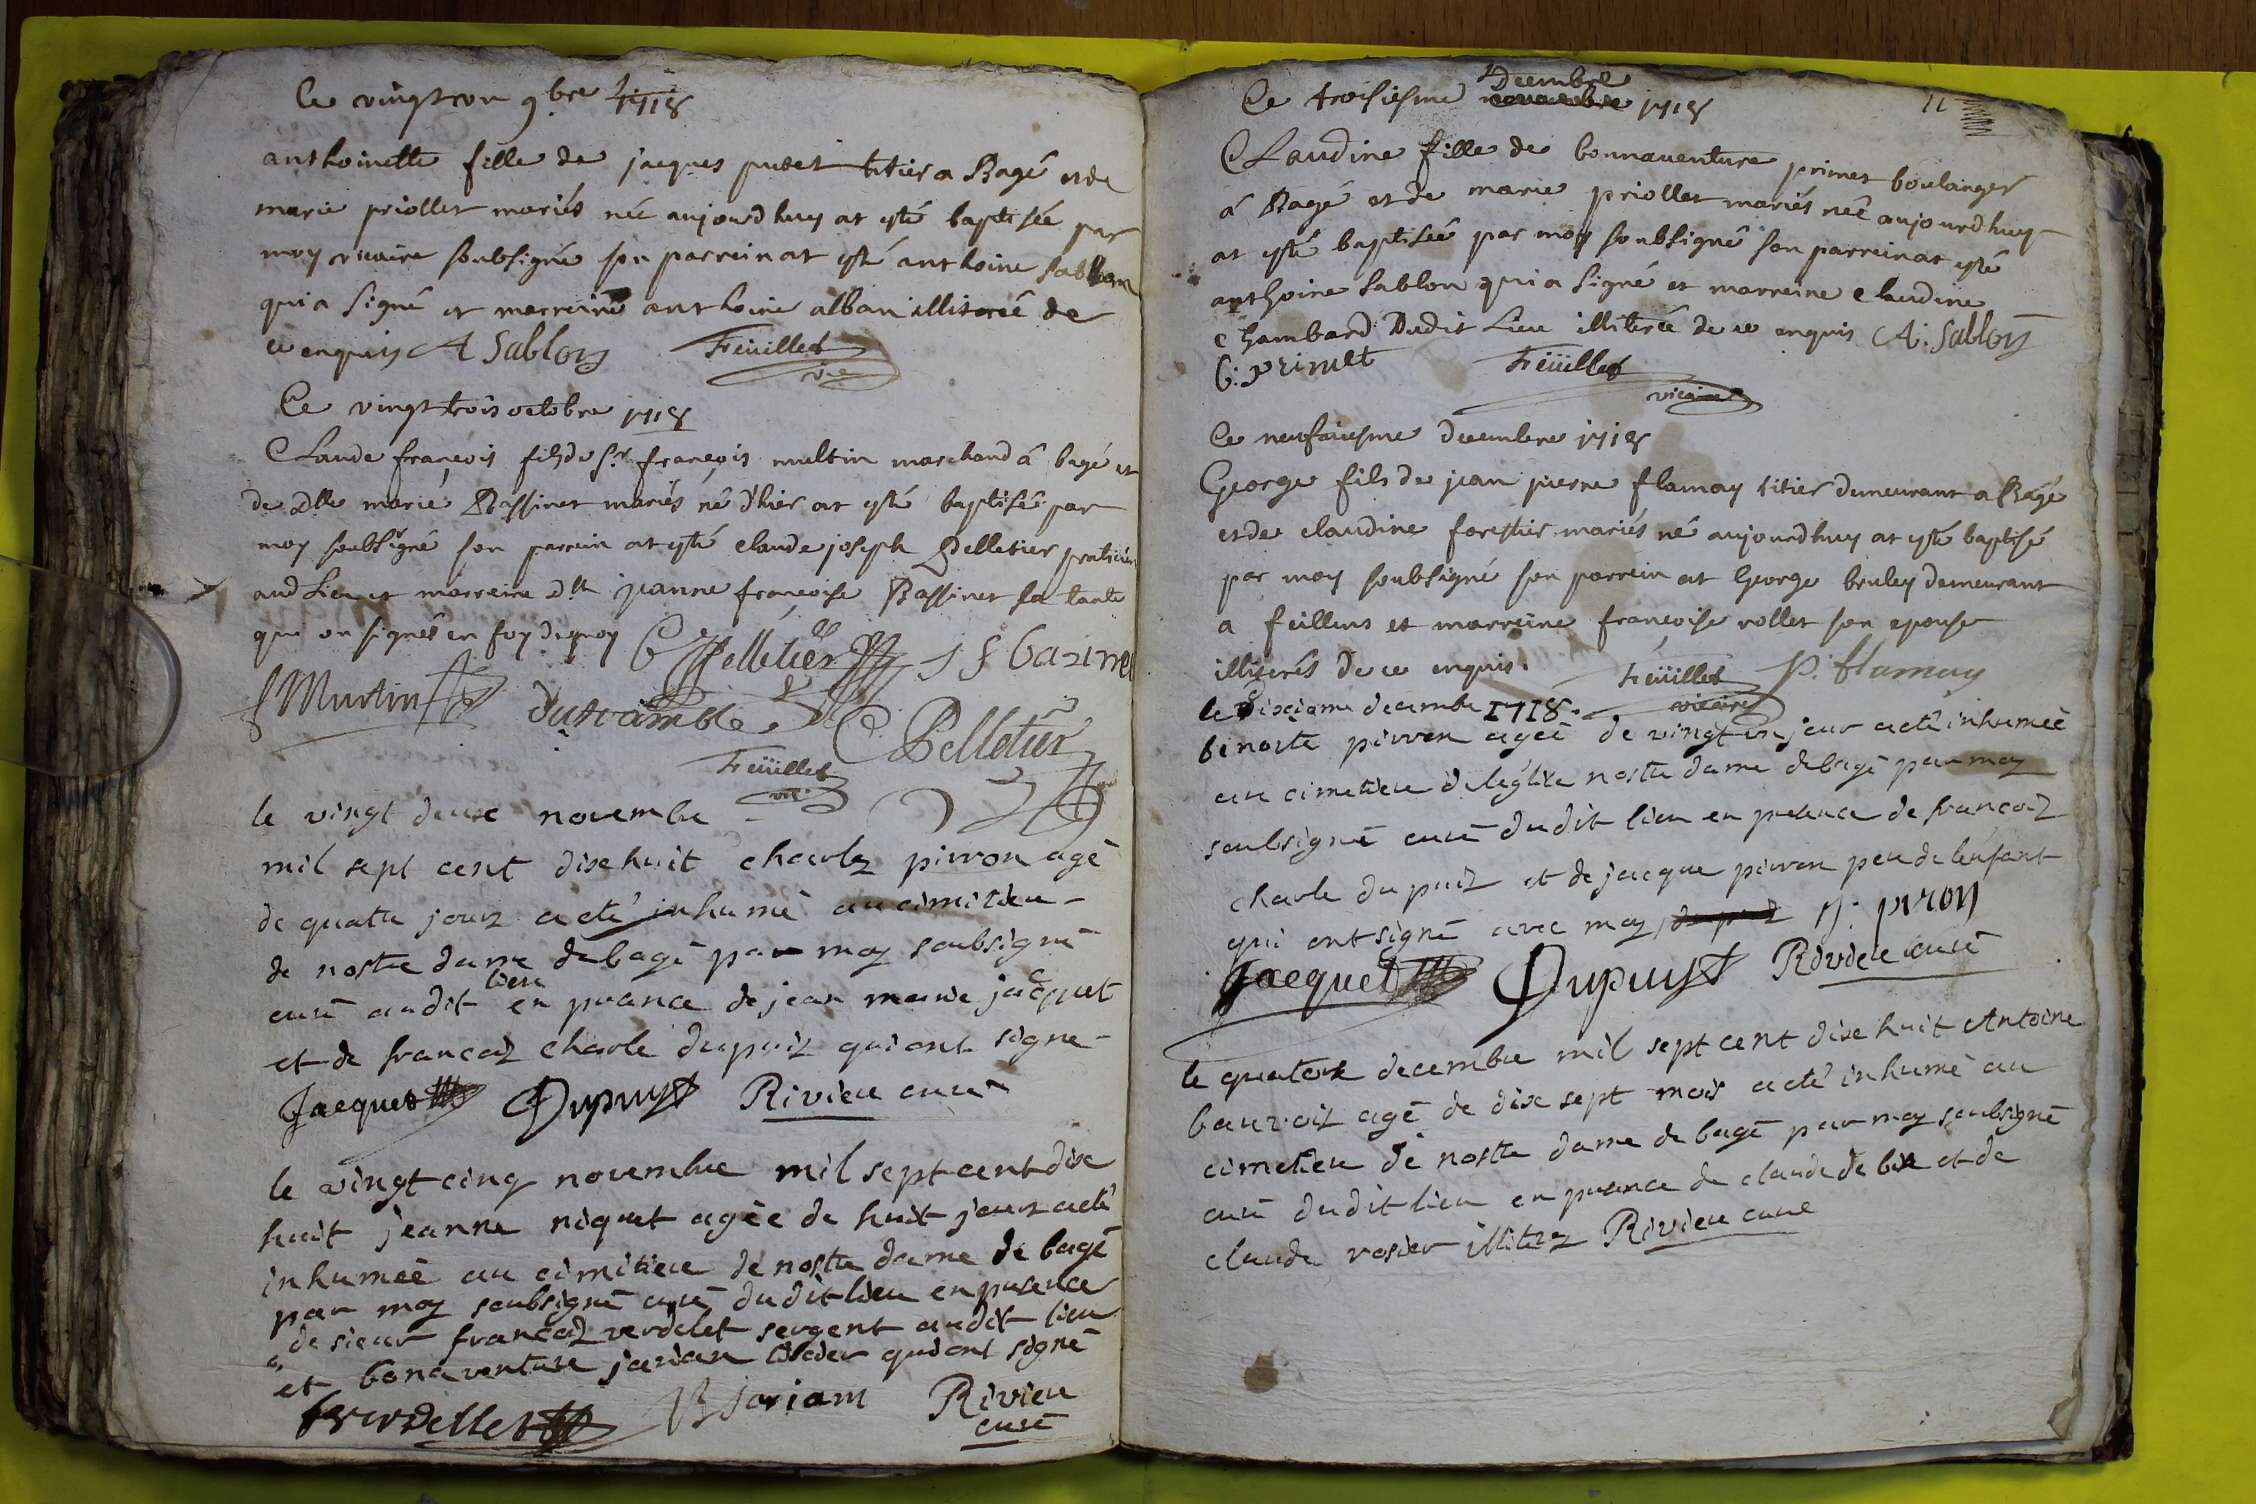 Ce vingt un 9.bre 1718
anthoinette fille de jacques putet titier a Bagé et de
marie priollet mariés née aujourdhuy at esté baptisée par
moy vicaire soubsigné son parrein at esté anthoine Sablon
qui a signé et marreine anthoine alban illiterée de
ce enquis A Sablon Feüillet
vic.
Ce vingt trois octobre 1718
Claude françois fils du sr. françois multin marchand â bagé et
de dlle marie Bassinet mariés né d'hier at esté baptisé par
moy soubsigné son parrein at esté claude joseph Pelletier praticien
aud Lieu et marreine dlle jeanne françoise Bassinet sa tante
qui on signés en foy de quoy C Pelletier J f bazinet
f Murtin C Pelletier
Feüillet
vic.
le vingt deux novembre
mil sept cent dixe huit charle pirron agé
de quatre jours a eté inhumé au cimitiere
de nostre dame de bagé par moy soubsigné
curé audit lieu en presance de jean marie jacquet
et de françois charle dupuis qui ont signe
Jacquet Dupuys Riviere curé
le vingt cinq novembre mil sept cent dixe
huit jeanne niquet agée de huit jours a eté
inhumeé au cimitiere de nostre dame de bagé
par moy soubsigné curé dudit lieu en presence
de sieur françois verdelet sergent audit lieu
et bonaventure jarian qui ont signé
verdellet B joriam Riviere
curé
Ce troisiesme novembre Decembre 1718
11
Claudine fille de bonnaventure primet boulanger
â Bagé et de marie priollet mariés née aujourdhuy
at esté baptisée par moy soubsigné son parrein at esté
anthoine Sablon qui a signé et marreine claudine
chambard Dudit Lieu illiterée de ce enquis A. Sablon
b: primet Feüillet
vicaire
Ce neufviesme decembre 1718
George fils de jean pierre flamay titier demeurant a Bagé
et de claudine forestier mariés né aujourdhuy at esté baptisé
par moy soubsigné son parrein at George bruley demeurant
a feillens et marreine françoise rollet son epouse
illiterés de ce enquis. Feüillet P. flamay
vicaire
le dixiame decembre 1718.
benoite pirron ageé de vingt un jour a eté inhumeé
au cimetiere de l'eglixe nostre dame de bagé par moy
soubsigné curé dudit lieu en presance de françois
charle dupuis et de jacque pirron pere de lenfant
qui ont signé avec moy J. piron
Jacquet Dupuys Riviere curé
le quatorxe decembre mil sept cent dixe huit Antoine
bauvois agé de dixe sept mois a eté inhumé au
cimetiere de nostre dame de bagé par moy soubsigné
curé dudit lieu en presance de claude de bise et de
claude rosier illitere Riviere curé